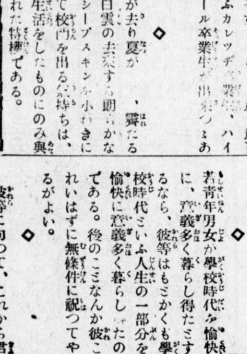 ふカレツヂ卒業、ハイ
ール卒業生が出來つゝあ
が去り夏が
、霽たる
白雲の去來する朗らかな
シープスキンを小わきに
て校門を出る氣持ちは、
生活をしたものにのみ與
れた特權である。
若き青年男女が學校時代を愉快
に、意義多く暮らし得たとす
るなら、彼等はもとかくも學
校時代といふ人生の一部分を
愉快に意義多く暮らしたの
である。後のことなんか彼こ
れいはずに無條件に祝つてや
るがよい。
彼等に向つて、これから君